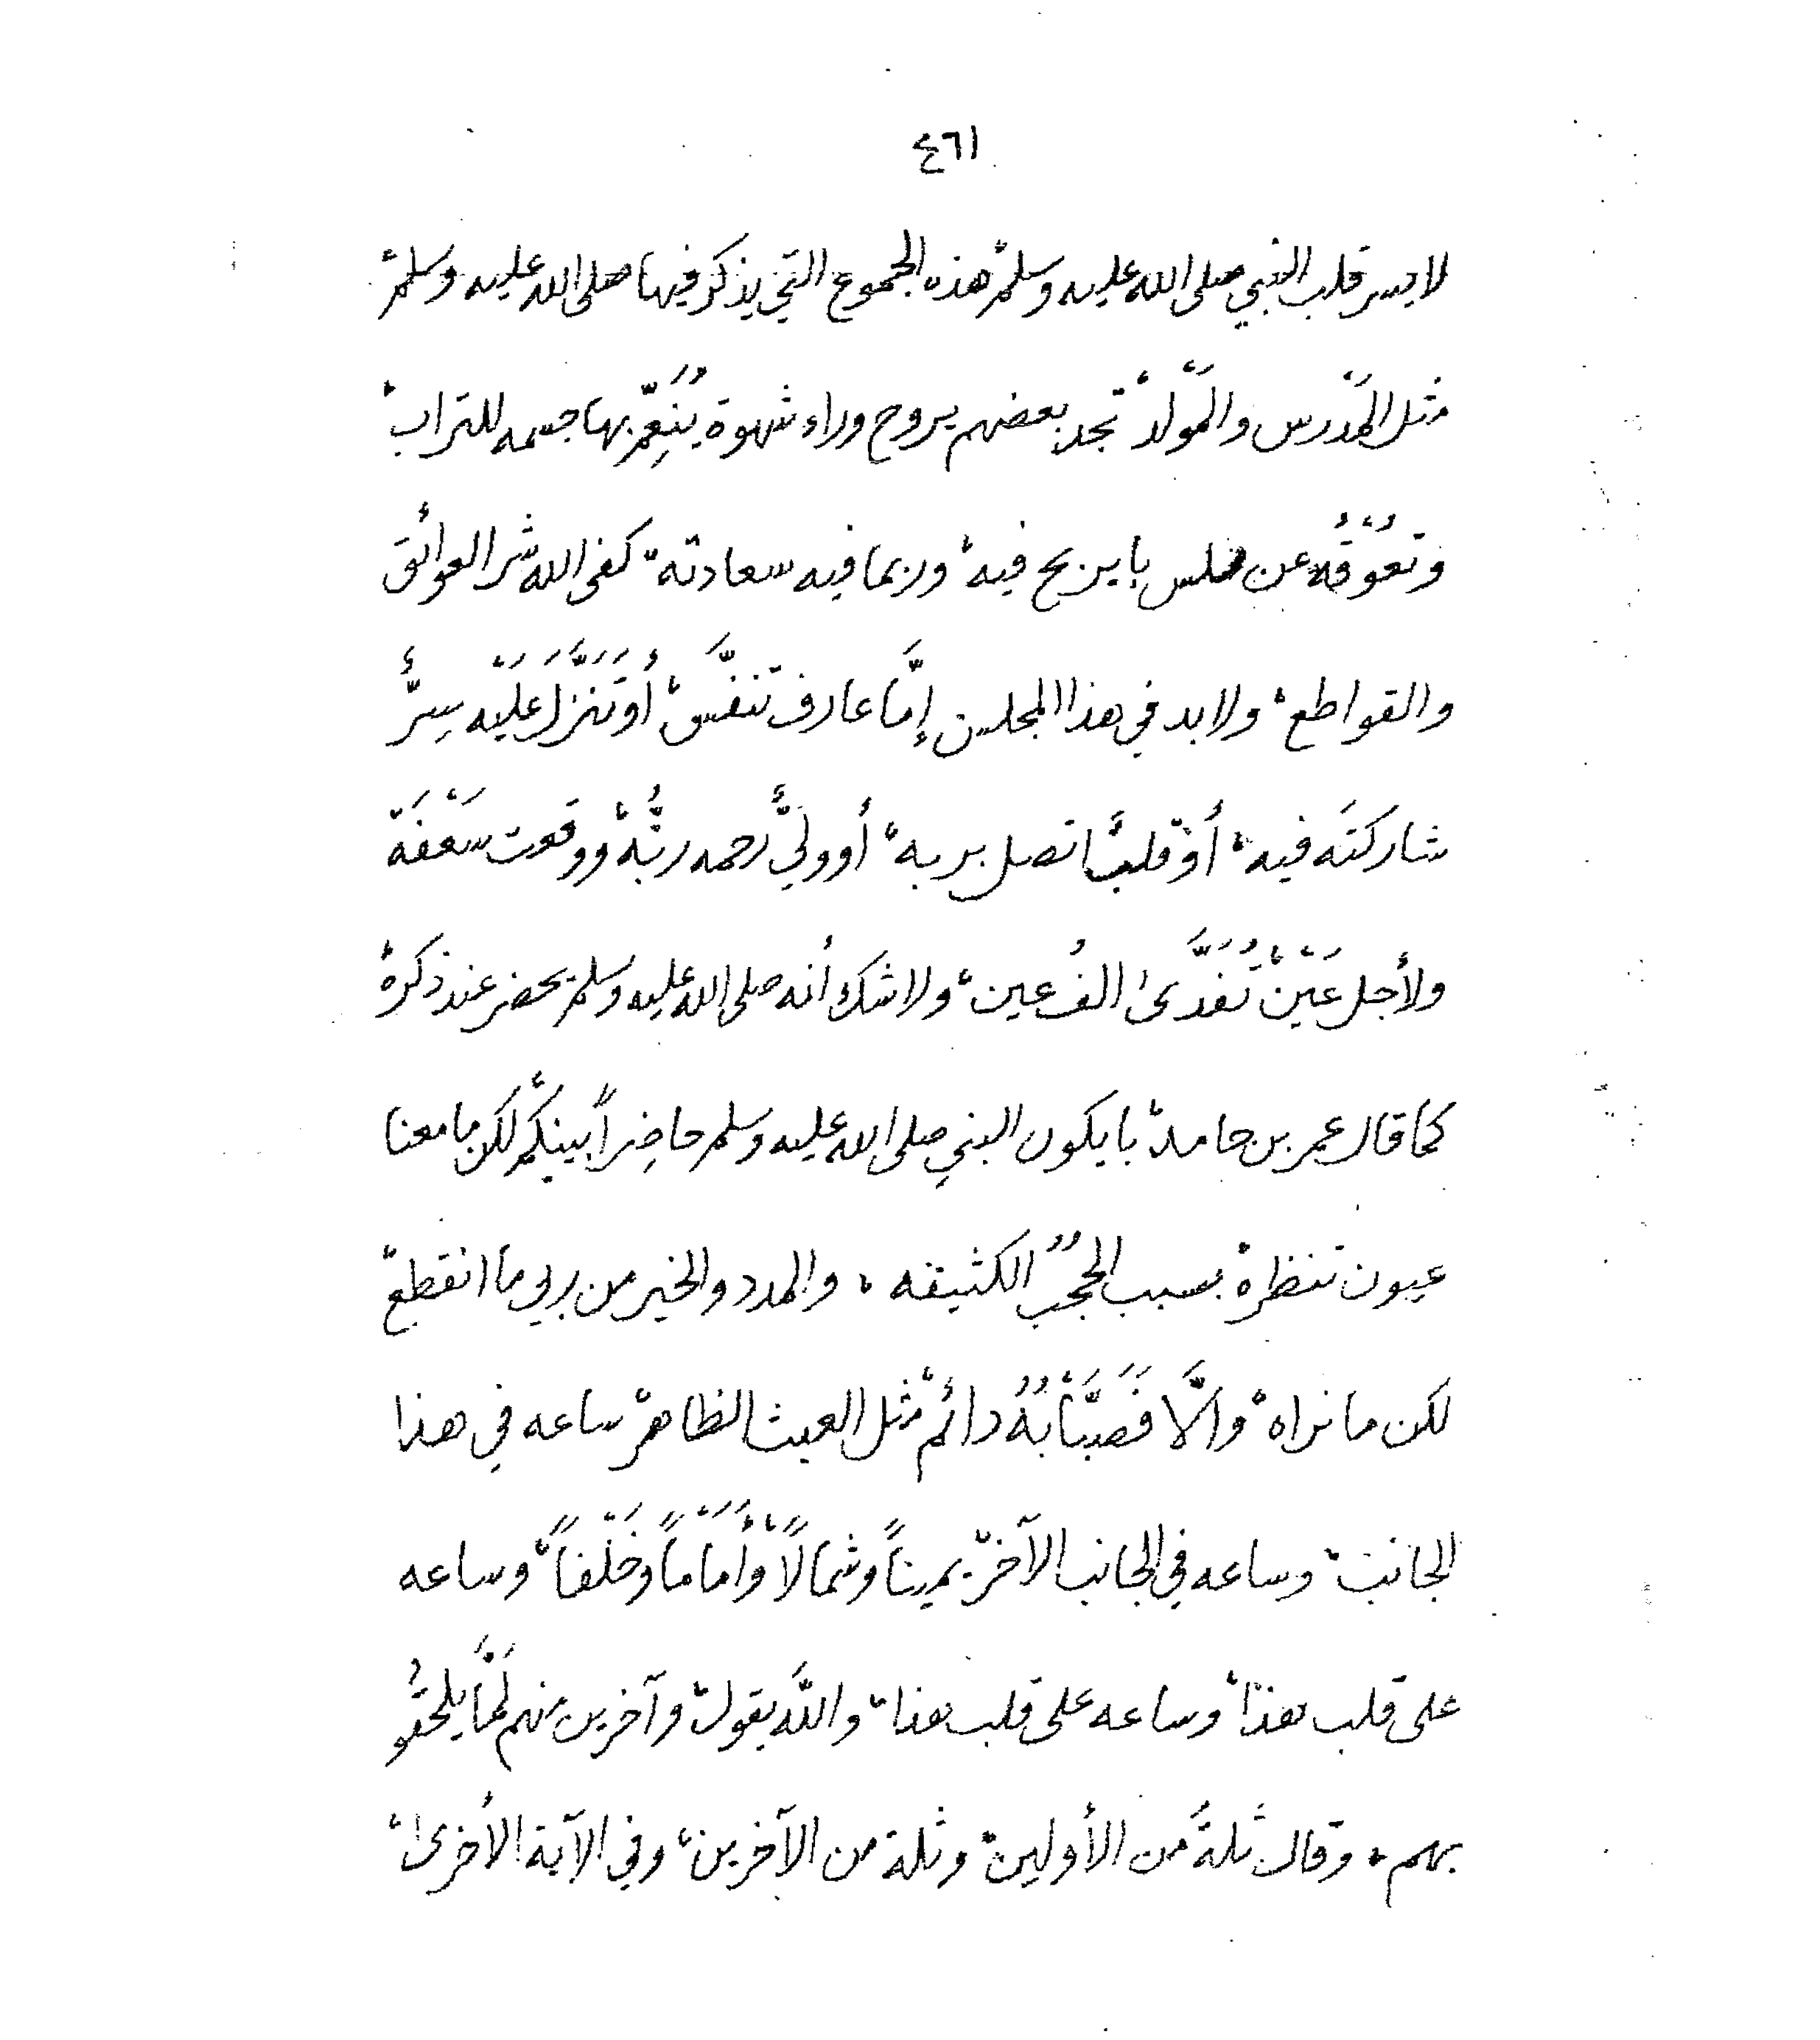 ٤٦١
لا يسر قلب النبي صلى الله عليه وسلم هذه الجموع التي يذكر فيها صلى الله عليه وسلم
مثل المَدْرس والمَوْلدْ تجد بعضهم يروح وراء شهوة يُنَعِّمْ بها جسمه للتراب
وتعُوْقُه عن مجلس با يربح فيه، وربما فيه سعادته، كفى الله شر العوائق
والقواطع، ولابد في هذا المجلس إمَّا عارف تنفَّس، أوتَنَزَّلَ عَلَيْه سِرٌّ
شاركتَه فيه، أوْ قلبٌ اتصل بربه، أو وليٌّ رحمه ربُّهْ ووقعت سَعْفَة
ولأجل عَيْنْ تُفَدَّى ألف عين، ولا شك أنه صلى الله عليه وسلم يحضر عند ذكره
كما قال عمر بن حامد، با يكون النبي صلى الله عليه وسلم حاضِراً بينكمْ لكن ما معنا
عيون تنظره بسبب الحجُبُ الكثيفه، والمدد والخير من ربي ما انقطع
لكن ما نراه، والَّا فَصَبَّابُهُ دائم مثل الغيث الظاهر، ساعه في هذا
الجانب، وساعه في الجانب الآخر، يميناً وشمالًا وأَمَاماً وخَلْفاً، وساعه
على قلب هذا، وساعه على قلب هذا، والله يقول، وآخرين منهم لَمَّا يلحقُو
بهم، وقال ثلةٌ من الأولين، وثلة من الآخرين، وفي الآية الأُخرى،